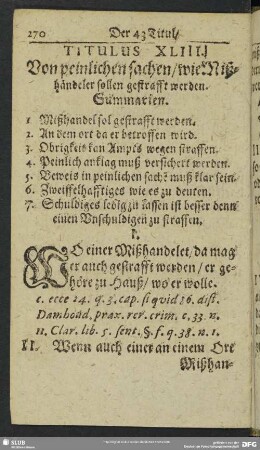 270 Der 43 Titul/
TITULUS XLIII.
Von peinlichen sachen/wie Miß-
händeler sollen gestrafft werden.
Summarien.
1 Mißhandel sol gestrafft werden.
2. An dem ort da er betroffen wird.
3. Obrigkeit kan Ampts wegen straffen.
4. Peinlich anklag muß versichert werden.
5. Beweis in peinlichen sachẽ muß klar sein.
6. Zweiffelhafftiges wie es zu deuten.
7. Schuldiges ledig zu lassen ist besser denn
einen Vnschuldigen zu straffen.
I.
WO einer Mißhandelet, da mag
er auch gestrafft werden/ er ge-
höre zu Hauß/ wo er wolle.
c. ecce 24. q. 3. cap. si qvid 36. dist.
Damhoud. prax. rer. crim. c. 33. n.
11. Clar. lib. 5. sent. §. f. q. 38. n. 1.
II. Wenn auch einer an einem Ort
Mißhan-
SLUB
DFG